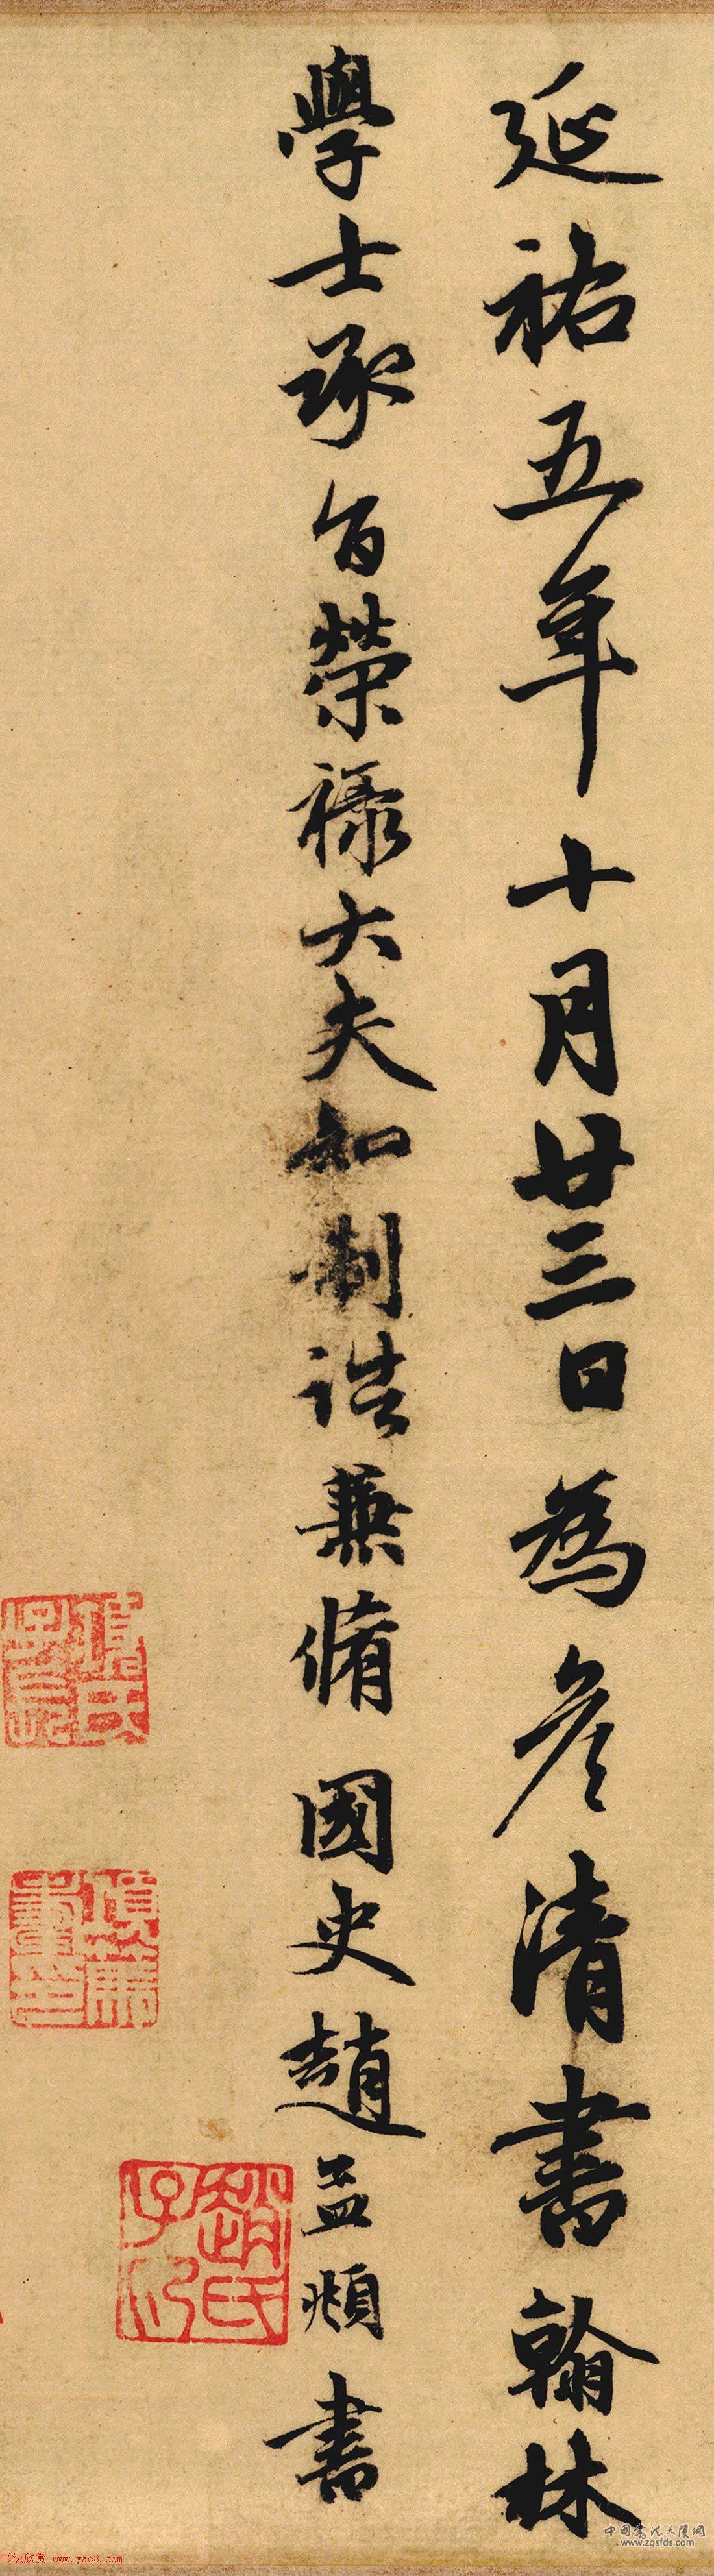 延祐五年十月廿三日為彦清書翰林
學士承旨榮祿大夫知制誥兼脩國史趙孟頫書
趙氏子印
中国书法大厦网
www.zgsfds.com
书法欣赏 www.yac8.com